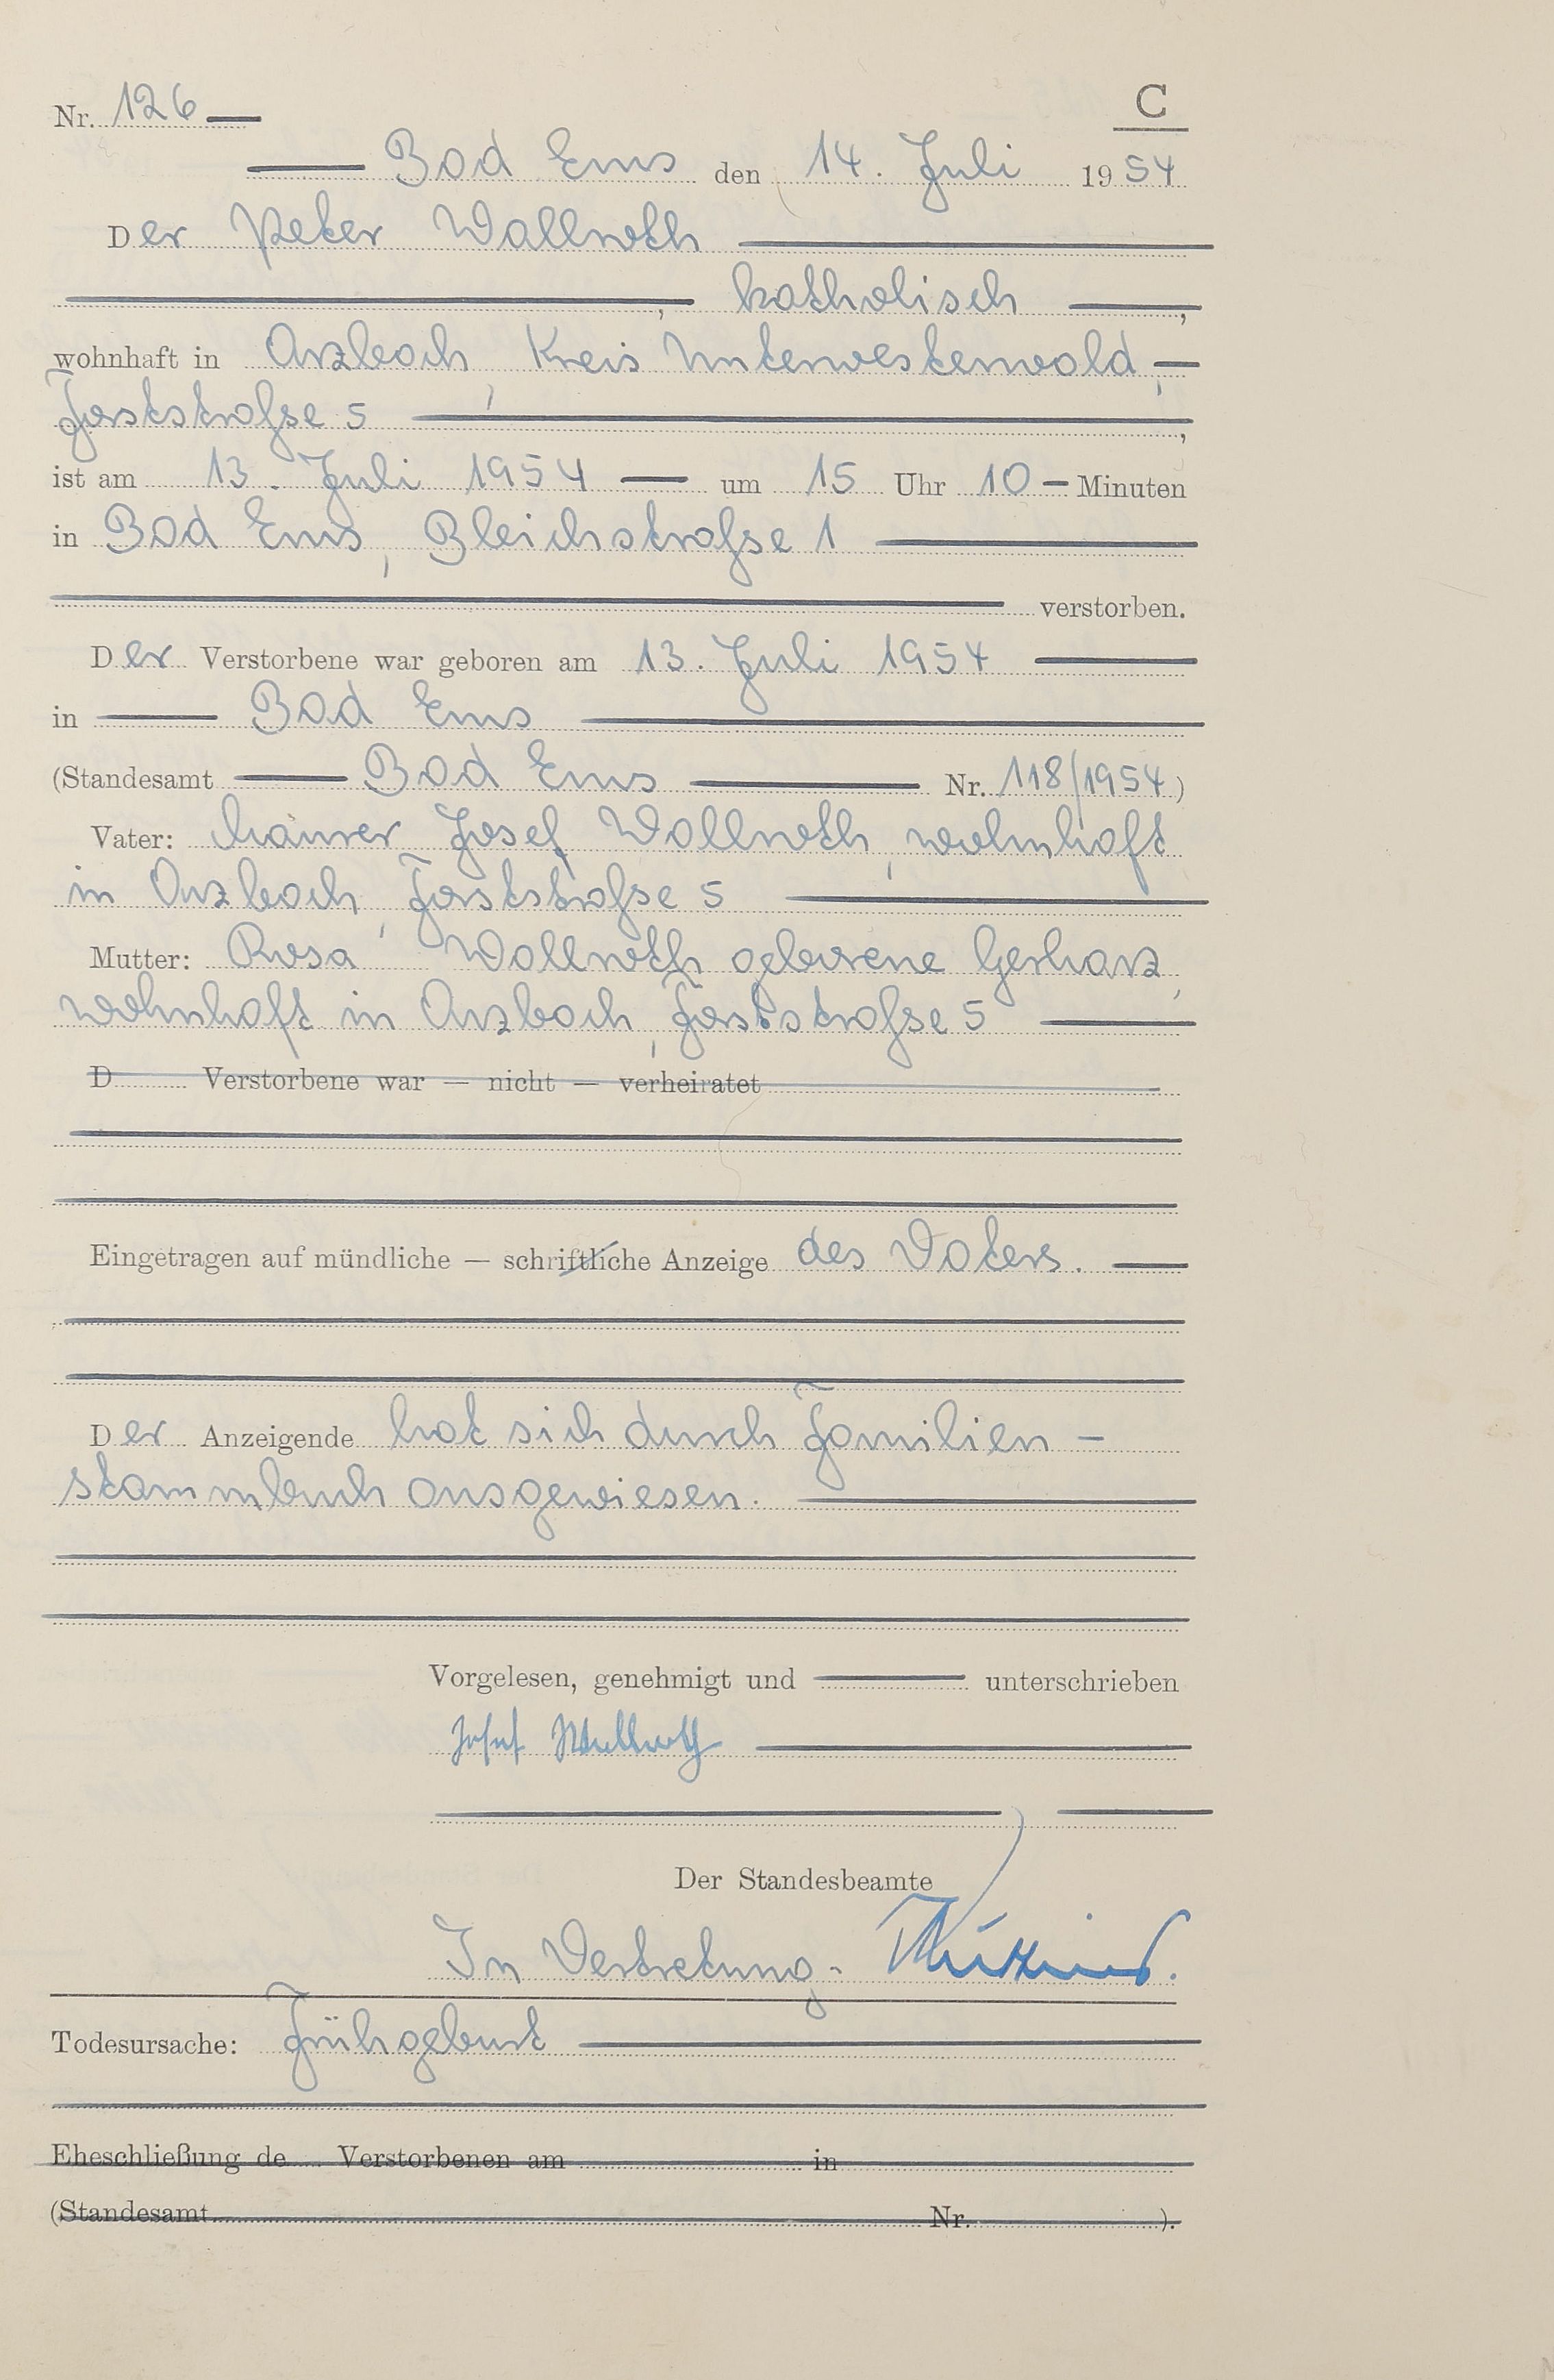 Nr. 126 C
Bad Ems den 14. Juli 1954
Der Peter Wallroth
, katholisch ,
wohnhaft in Arzbach, Kreis Unterwesterwald,
Forststraße 5 ,
ist am 13. Juli 1954 um 15 Uhr 10 Minuten
in Bad Ems, Bleichstraße 1
verstorben.
Der Verstorbene war geboren am 13. Juli 1954
in Bad Ems
(Standesamt Bad Ems Nr. 118/1954)
Vater: Maurer Josef Wallroth, wohnhaft
in Arzbach, Forststraße 5
Mutter: Rosa Wallroth geborene Gerharz,
wohnhaft in Arzbach, Forststraße 5
D Verstorbene war — nicht — verheiratet
Eingetragen auf mündliche — schriftliche Anzeige des Vaters.
Der Anzeigende hat sich durch Familien-
stammbuch ausgewiesen.
Vorgelesen, genehmigt und unterschrieben
Josef Wallroth
Der Standesbeamte
In Vertretung.
Todesursache: Frühgeburt
Eheschließung de Verstorbenen am in
(Standesamt Nr. ).